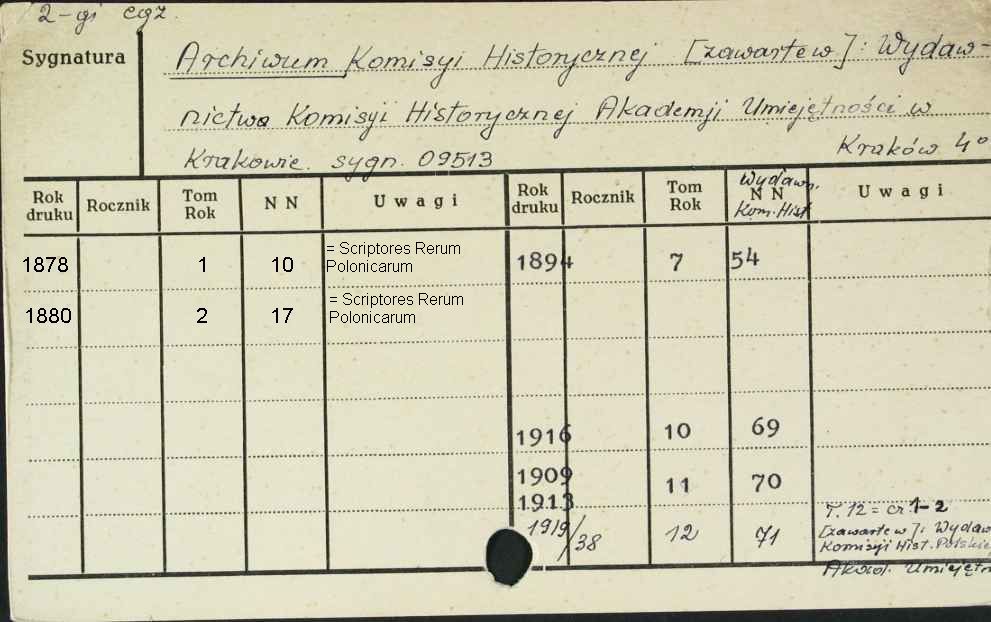 2-gi egz.
Sygnatura
Archiwum Komisyi Historycznej [zawarte w]: Wydaw-
nictwa Komisyi Historycznej Akademji Umiejętności w
Krakowie. sygn. 09513 Kraków 4°
Rok druku Rocznik Tom Rok N N Uwagi Rok druku Rocznik Tom Rok Wydawn. N N Kom. Hist. Uwagi
1878 1 10 = Scriptores Rerum Polonicarum 1894 7 54
1880 2 17 = Scriptores Rerum Polonicarum
1916 10 69
1909 1913 11 70
1919/38 12 71
T. 12 = cz 1-2
[zawarte w]: Wydaw
Komisji Hist. Polskie
Akad. Umiejętn